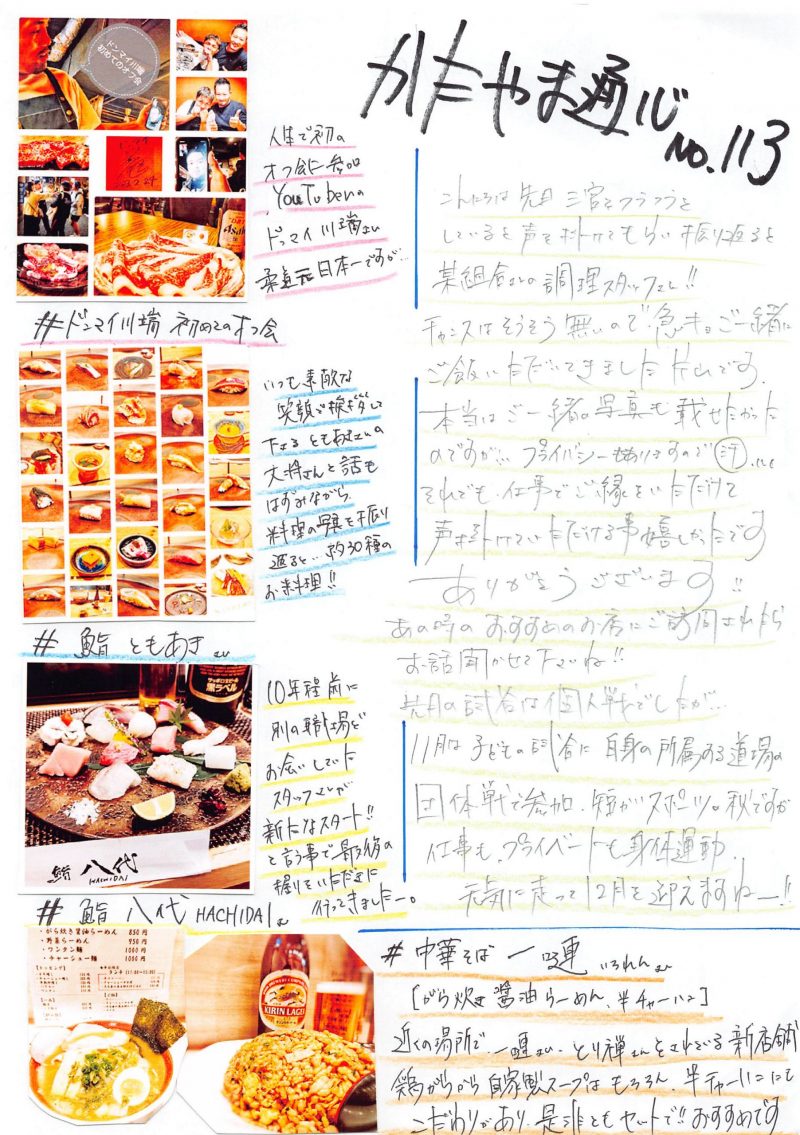 かたやま通心
No.113
ドンマイ川端
初めてのオフ会
人生で初の
オフ会に参加
YouTuberの
ドンマイ川端さん
柔道元日本一ですが…
#ドンマイ川端 初めてのオフ会
こんにちは 先日 三宮をフラフラと
していると声を掛けてもらい振り返ると
某組合さんの調理スタッフさん!!
チャンスはそうそう無いので急きょご一緒に
ご飯いただいてきました片山です。
本当はご一緒の写真も載せたかった
のですが… プライバシーもありますので
それでも、仕事でご縁をいただけて
声を掛けていただける事嬉しかったです
ありがとうございます!!
あの時のおすすめのお店にご訪問されたら
お話聞かせて下さいね!!
先月の試合は個人戦でしたが…
11月は子どもの試合に自身の所属する道場の
団体戦で参加、短いがスポーツの秋ですが
仕事も、プライベートも身体運動、
元気に走って12月を迎えますねー!!
いつも素敵な
笑顔で挨拶して
下さるともあきさんの
大将さんと話も
はずみながら
料理の写真を振り
返ると…約30種の
お料理!!
# 鮨 ともあき さん
10年程前に
別の職場で
お会いしていた
スタッフさんが
新たなスタート!!
と言う事で最後の
握りをいただきに
行ってきましたー。
サッポロ生ビール
黒ラベル
鮨 八代
HACHIDAI
# 鮨 八代 HACHIDAI さん
・がら炊き醤油らーめん 850円
・野菜らーめん 950円
・ワンタン麺 1000円
・チャーシュー麺 1050円
KIRIN LAGER
# 中華そば 一連 いちれん さん
[がら炊き 醤油らーめん、半チャーハン]
近くの場所で、一連さん、とり禅さんをされている新店舗
鶏がらから自家製スープはもちろん、半チャーハンにて
こだわりがあり、是非ともセットで!! おすすめです